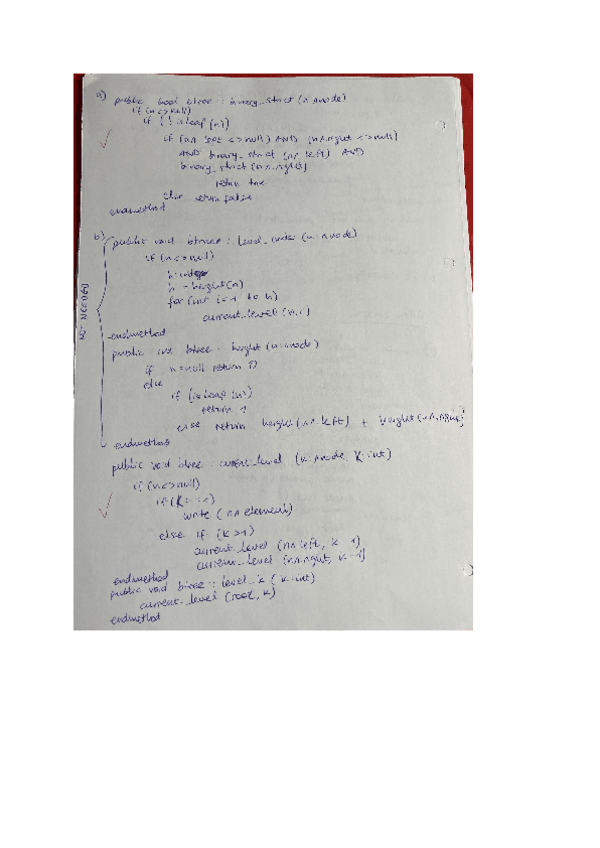 a) public bool btree :: binary_strict (n ^node)
if (n <> null)
if ( ! isLeaf (n))
if (n^.left <> null) AND (n^.right <> null)
AND binary_strict (n^.left) AND
binary_strict (n^.right)
return true
else return false
endmethod
b) public void btree :: level_order (n: ^node)
if (n <> null)
h: integer
h = height (n)
for (int i = 1 to h)
current_level (n, i)
endmethod
public int btree :: height (n: ^node)
if n = null return 0
else
if (isLeaf (n))
return 1
else return height (n^.left) + height (n^.right)
endmethod
NOT NEEDED
public void btree :: current_level (n: ^node, K: int)
if (n <> null)
if (K == 1)
write (n^.element)
else if (K > 1)
current_level (n^.left, k - 1)
current_level (n^.right, k - 1)
endmethod
public void btree :: level_k (k: int)
current_level (root, k)
endmethod